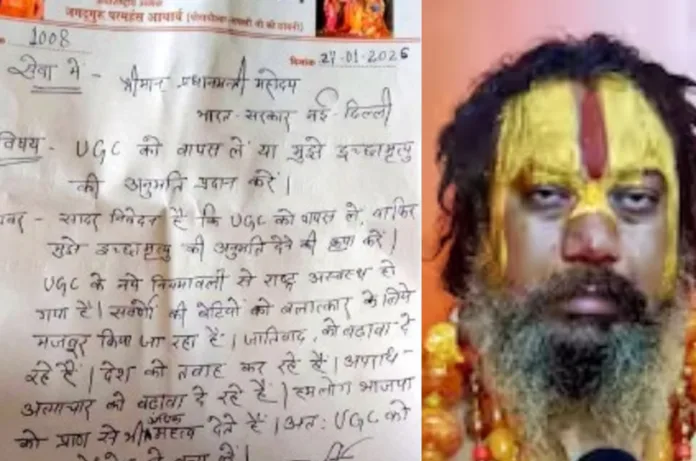 जगद्गुरु परमहंस आचार्य
1008
दिनांक 27-01-2026
सेवा में - श्रीमान प्रधानमन्त्री महोदय
भारत-सरकार नई-दिल्ली
विषय - UGC को वापस लें या मुझे इच्छामृत्यु
की अनुमति प्रदान करें।
सादर निवेदन है कि UGC को वापस लें, या फिर
मुझे इच्छामृत्यु की अनुमति देने की कृपा करें।
UGC के नये नियमावली से राष्ट्र अस्वस्थ हो
गया है। सवर्णों की बेटियों को बलात्कार के लिये
मजबूर किया जा रहा है। जातिवाद, को बढ़ावा दे
रहे हैं। देश को तबाह कर रहे हैं। अपराध-
अत्याचार को बढ़ावा दे रहे हैं। हमलोग भाजपा
को प्राण से भी अधिक महत्व देते हैं। अतः UGC को